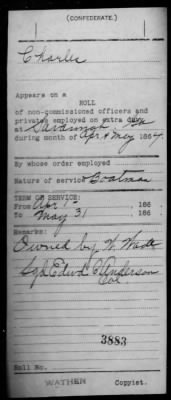 (CONFEDERATE.)
Charles
Appears on a
ROLL
of non-commissioned officers and
privates employed on extra duty
at Savannah, Ga
during month of Apr & May, 1864.
By whose order employed
Nature of service Boatman
TERM OF SERVICE:
From Apr 1st, 186 .
To May 31, 186 .
Remarks:
Owned by W. Wade
Sgd Edwd C Anderson
Col
3883
Roll No.
WATHEN
Copyist.